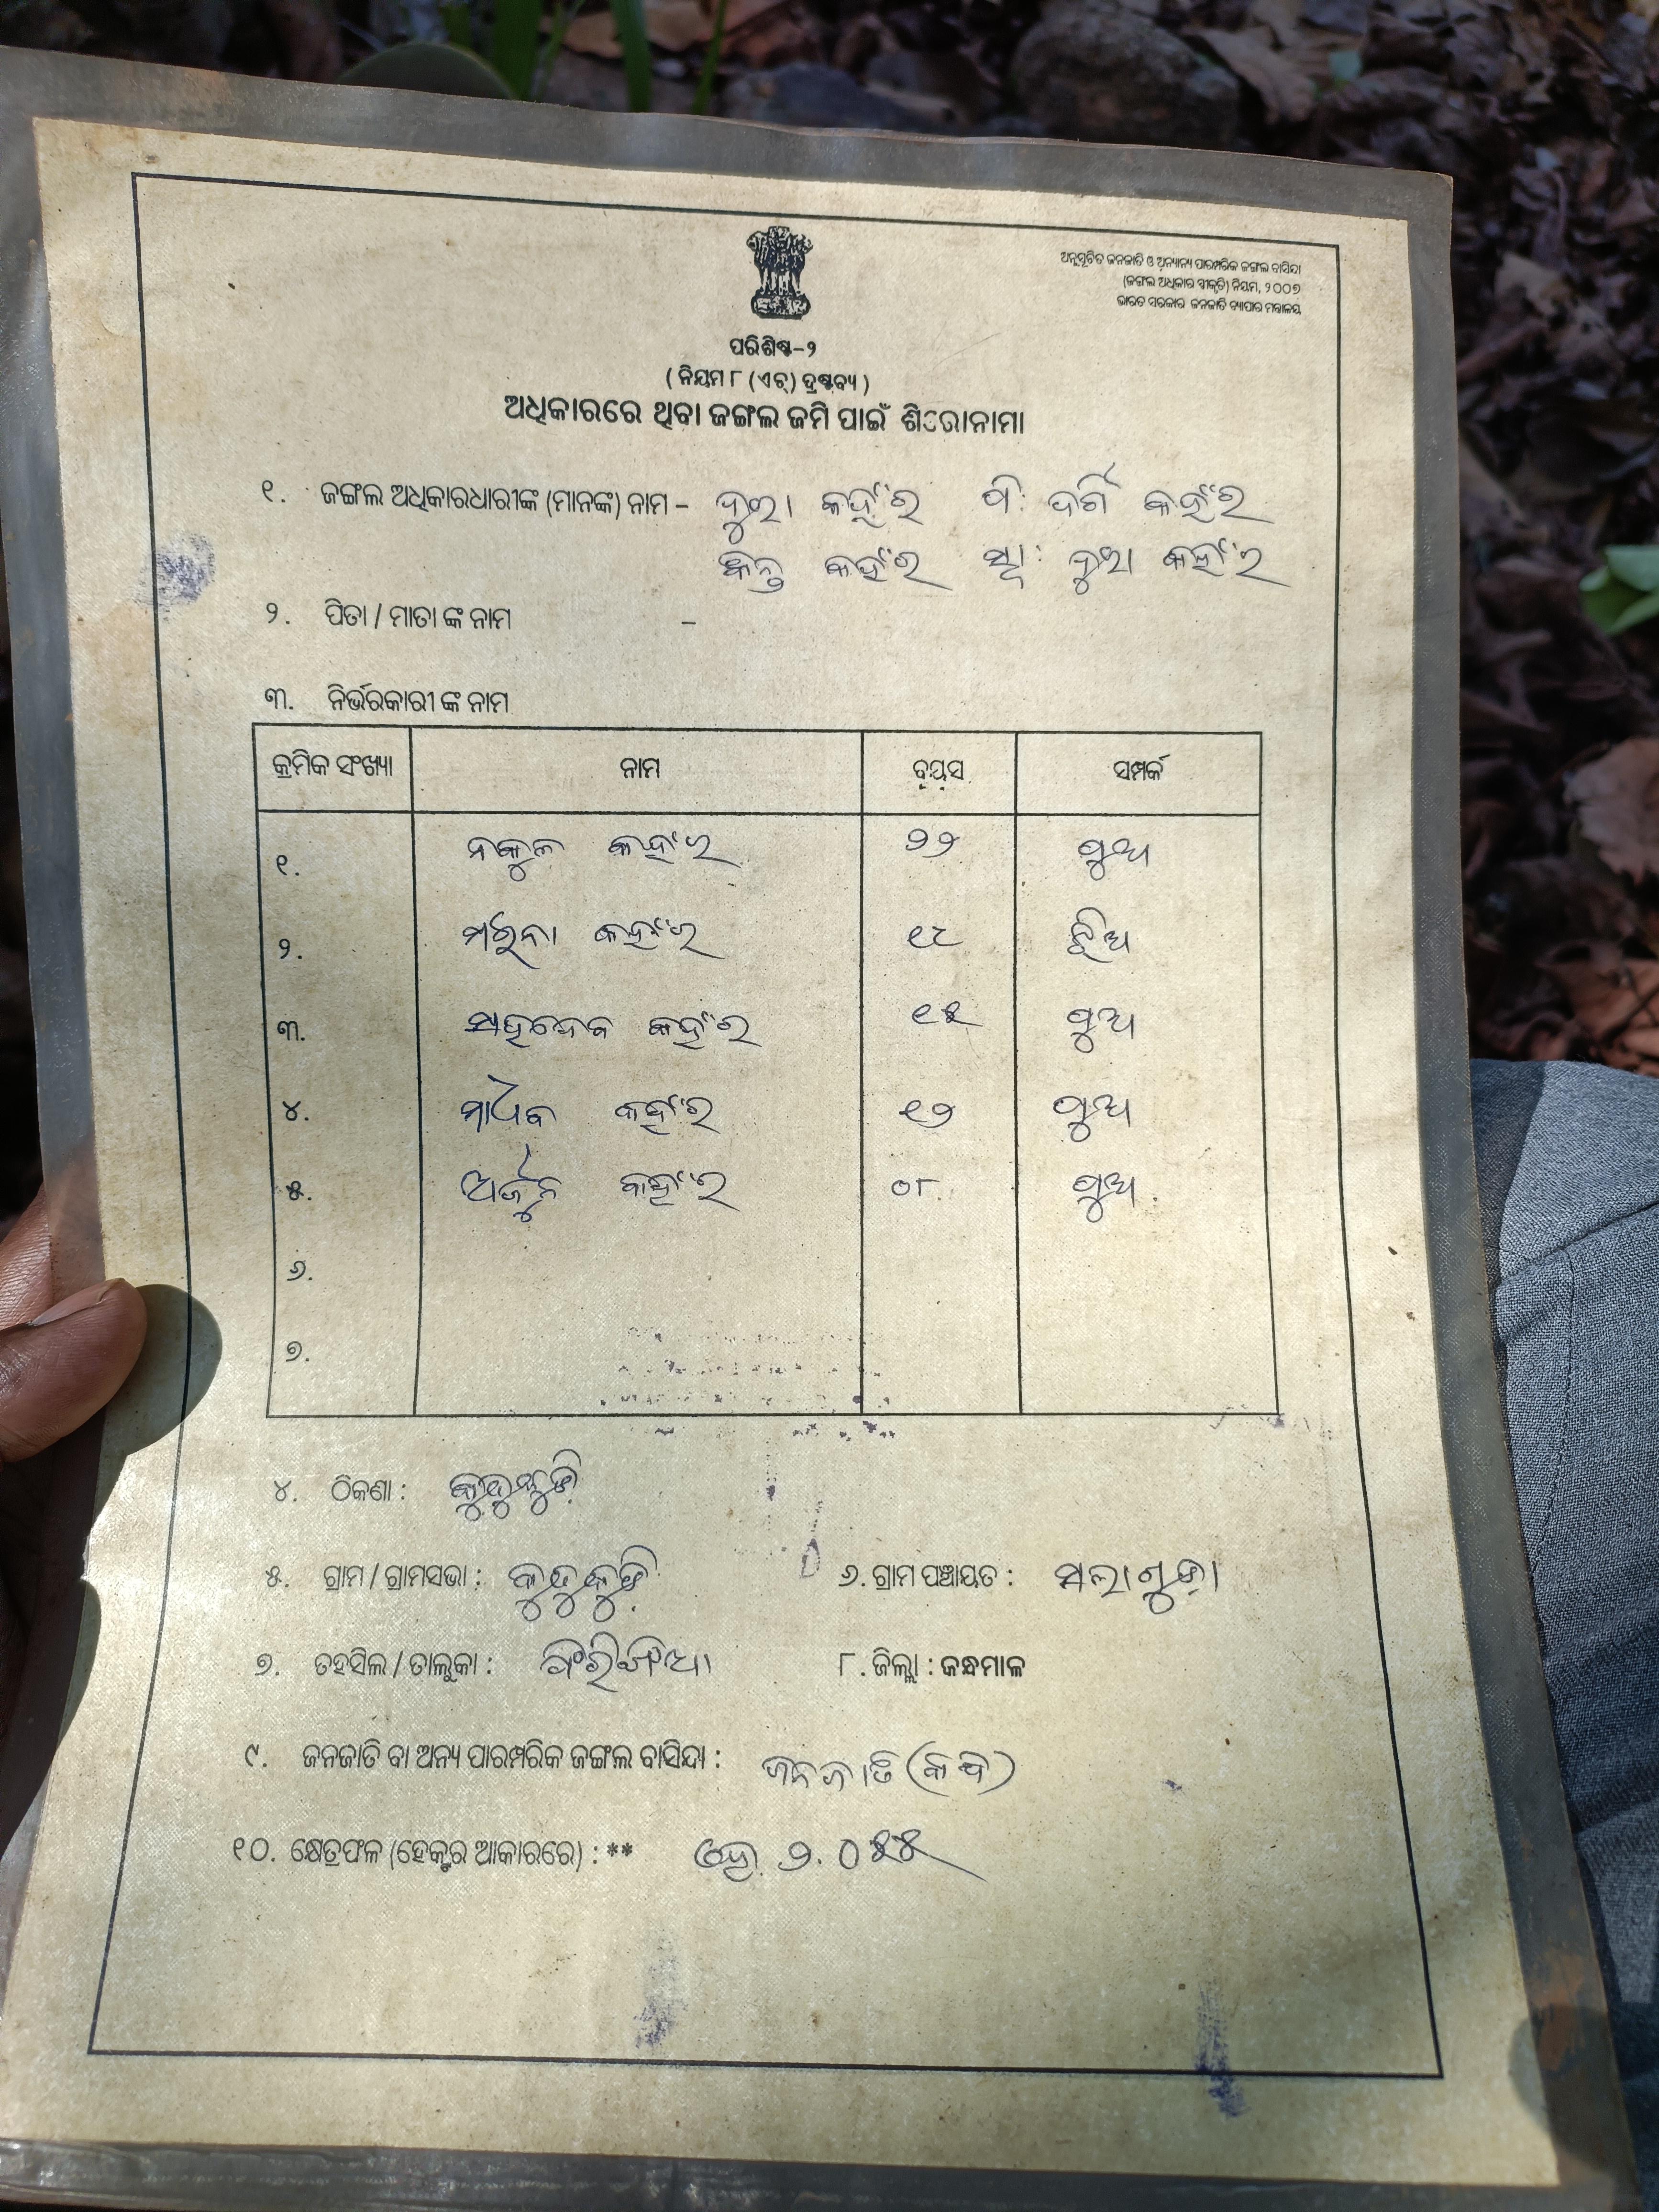 ଅନୁସୂଚିତ ଜନଜାତି ଓ ଅନ୍ୟାନ୍ୟ ପାରମ୍ପରିକ ଜଙ୍ଗଲ ବାସିନ୍ଦା
(ଜଙ୍ଗଲ ଅଧିକାର ସ୍ୱୀକୃତି) ନିୟମ, ୨୦୦୭
ଭାରତ ସରକାର ଜନଜାତି ବ୍ୟାପାର ମନ୍ତ୍ରାଳୟ
ପରିଶିଷ୍ଟ-୨
( ନିୟମ ୮ (ଏଚ୍) ଦ୍ରଷ୍ଟବ୍ୟ )
ଅଧିକାରରେ ଥିବା ଜଙ୍ଗଲ ଜମି ପାଇଁ ଶିରୋନାମା
୧. ଜଙ୍ଗଲ ଅଧିକାରଧାରୀଙ୍କ (ମାନଙ୍କ) ନାମ – କହଁର ପି: କହଁର
କହଁର ସ୍ୱା: କହଁର
୨. ପିତା / ମାତା ଙ୍କ ନାମ –
୩. ନିର୍ଭରକାରୀ ଙ୍କ ନାମ
କ୍ରମିକ ସଂଖ୍ୟା ନାମ ବୟସ ସମ୍ପର୍କ
୧. ନକୁଳ କହଁର ୨୨ ପୁଅ
୨. କହଁର ୧୮ ଝିଅ
୩. ସହଦେବ କହଁର ୧୫ ପୁଅ
୪. ମାଧବ କହଁର ୧୨ ପୁଅ
୫. ଅର୍ଜୁନ କହଁର ୦୮ ପୁଅ
୬.
୭.
୪. ଠିକଣା :
୫. ଗ୍ରାମ / ଗ୍ରାମସଭା : କୁଡୁକୁଡି ୬. ଗ୍ରାମ ପଞ୍ଚାୟତ :
୭. ତହସିଲ / ତାଲୁକା : ୮. ଜିଲ୍ଲା : କନ୍ଧମାଳ
୯. ଜନଜାତି ବା ଅନ୍ୟ ପାରମ୍ପରିକ ଜଙ୍ଗଲ ବାସିନ୍ଦା : ଜନଜାତି (କନ୍ଧ)
୧୦. କ୍ଷେତ୍ରଫଳ (ହେକ୍ଟର ଆକାରରେ) : ** ହେ. ୨.୦୫୫